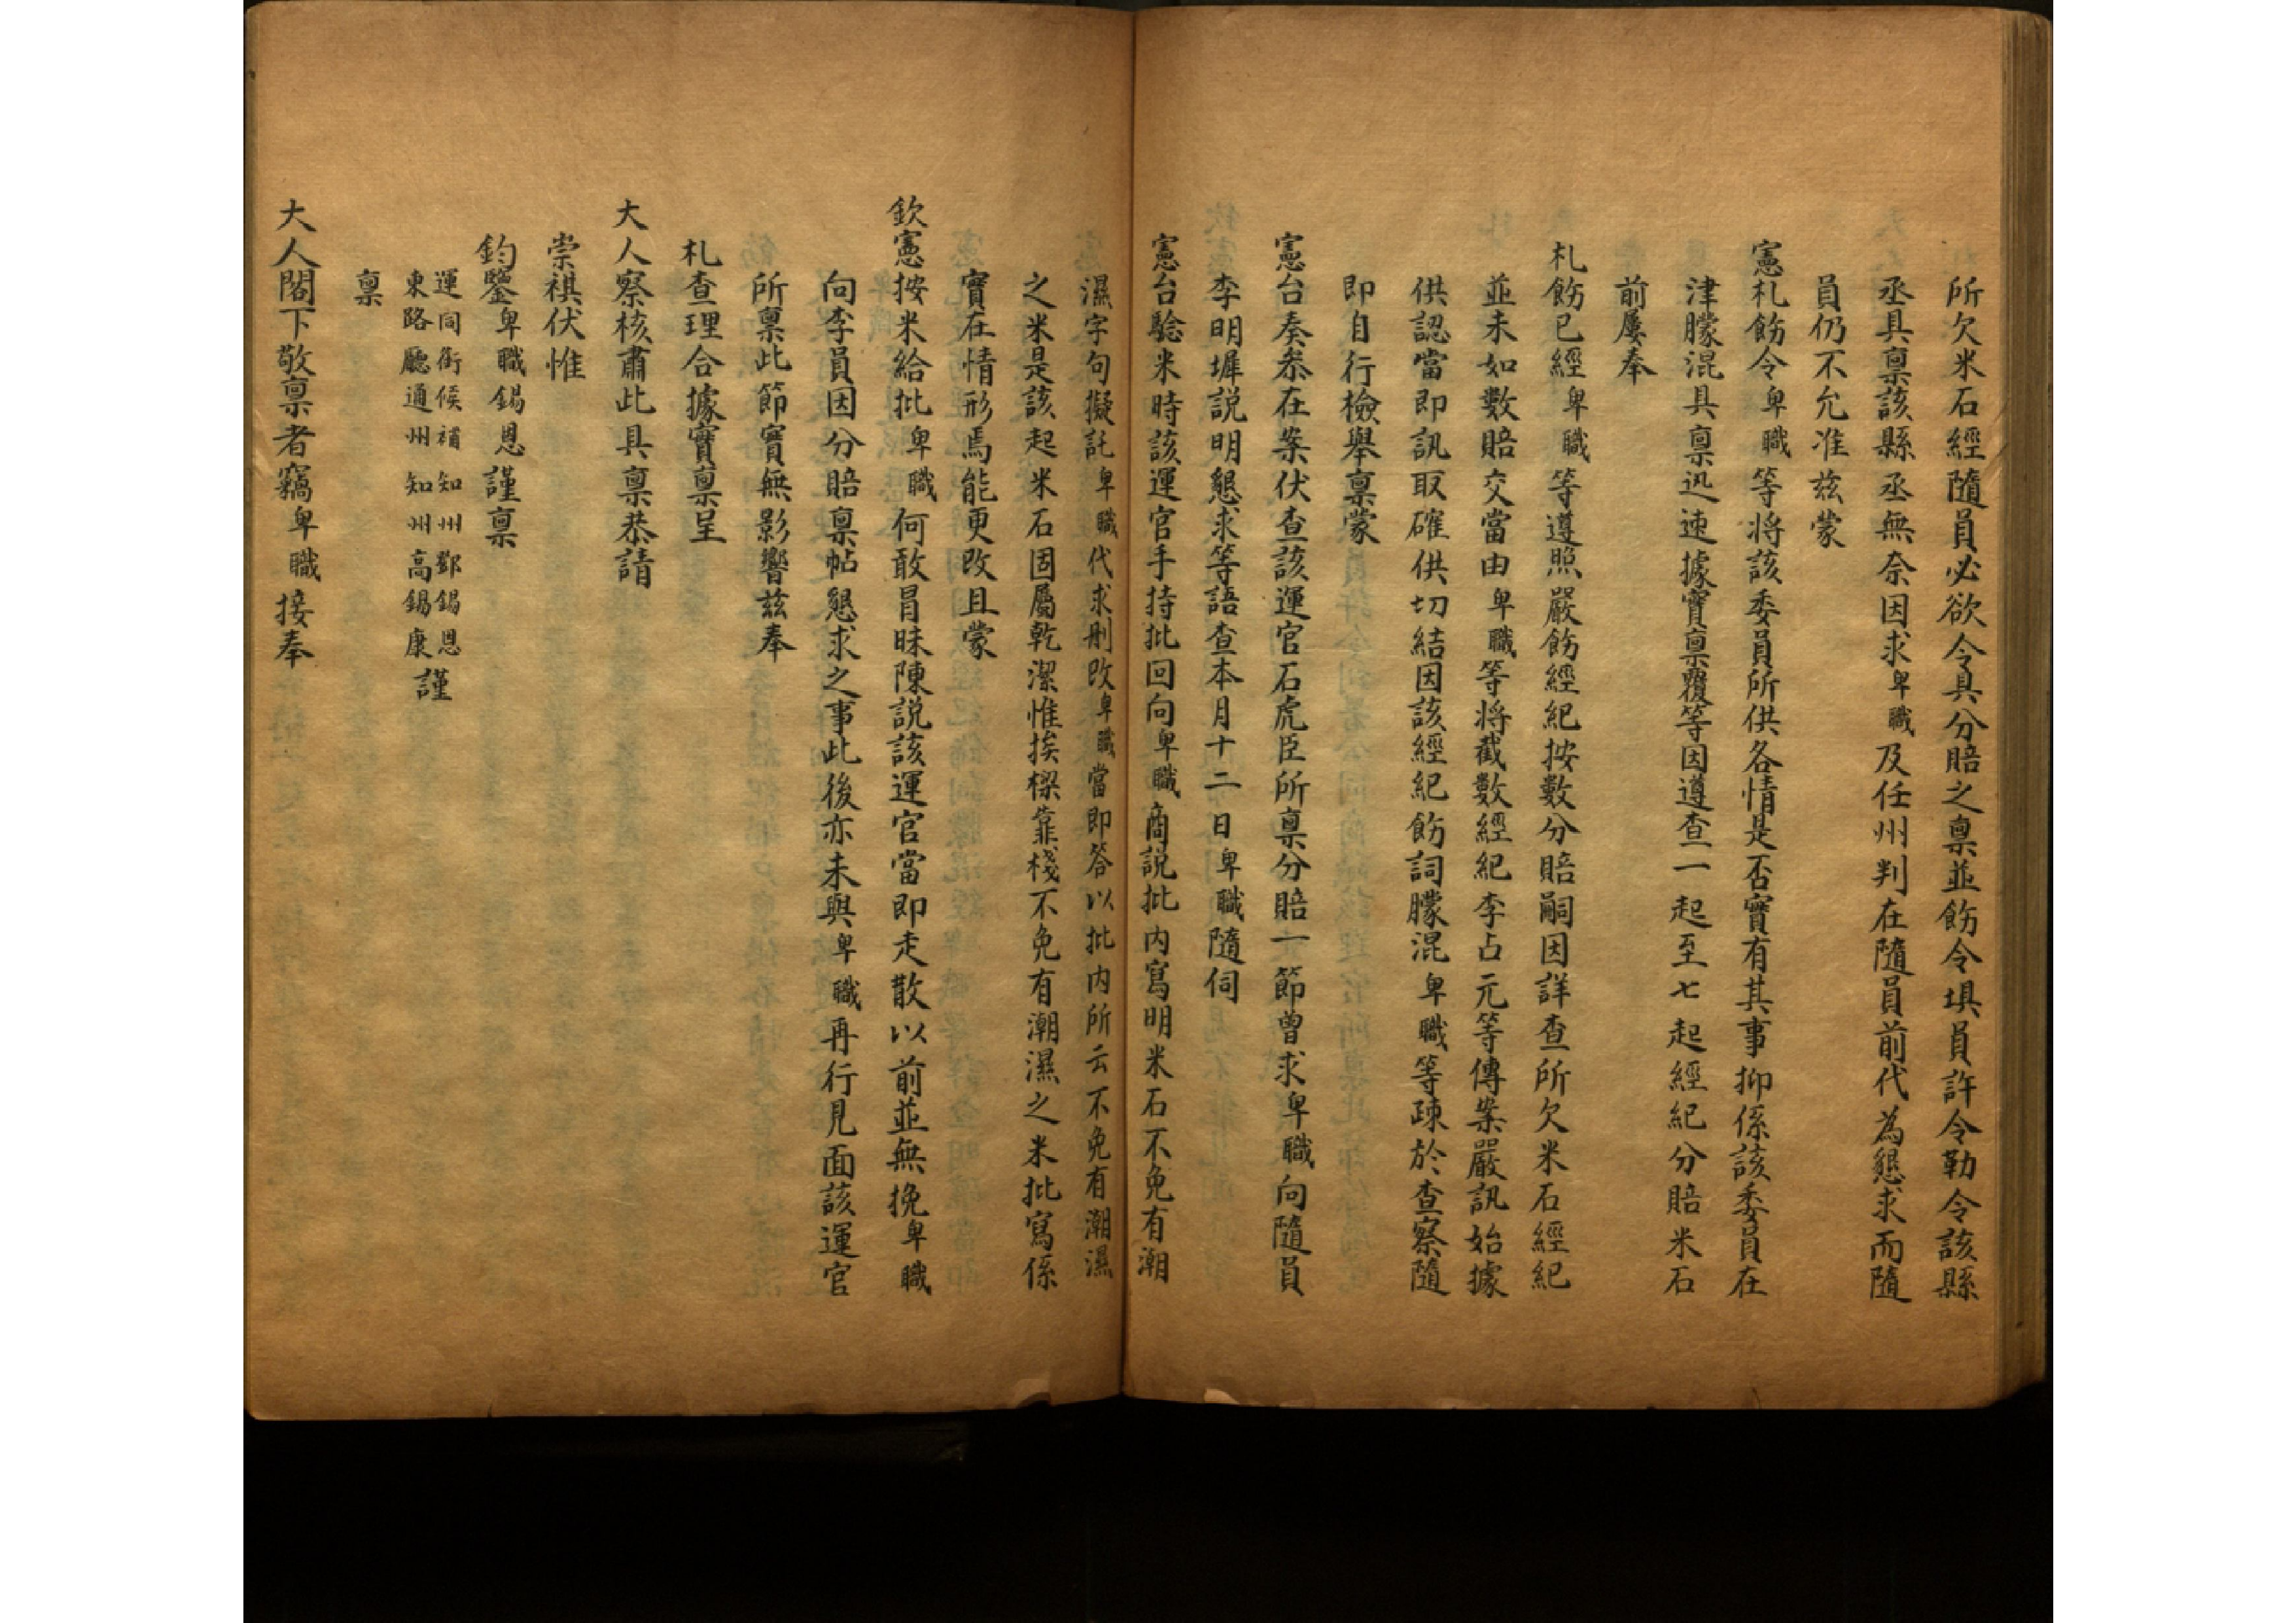 所欠米石經隨員必欲令具分賠之稟並飭令堪員許令勒令該縣
丞具稟該縣丞無奈因求卑職及任州判在隨員前代為懇求而隨
員仍不允准兹蒙
憲札飭令卑職等將該委員所供各情是否實有其事抑係該委員在
津朦混具稟迅速據實稟覆等因遵查一起至七起經紀分賠米石
前屢奉
札飭已經卑職等遵照嚴飭經紀按數分賠嗣因詳查所欠米石經紀
並未如數賠交當由卑職等將截數經紀李占元等傳案嚴訊始據
供認當即訊取確供切結因該經紀飭詞朦混卑職等疎於查察隨
即自行檢舉稟蒙
憲台奏叅在案伏查該運官石虎臣所稟分賠一節曾求卑職向隨員
李明墀説明懇求等語查本月十二日卑職隨伺
憲台騐米時該運官手持批回向卑職商説批内寫明米石不免有潮
濕字句擬託卑職代求刪改卑職當即答以批内所云不免有潮濕
之米是該起米石固屬乾潔惟挨樑靠棧不免有潮濕之米批寫係
實在情形焉能更改且蒙
欽憲按米給批卑職何敢冒昧陳説該運官當即走散以前並無挽卑職
向李員因分賠稟帖懇求之事此後亦未與卑職再行見面該運官
所稟此節實無影響兹奉
札查理合據實稟呈
大人察核肅此具稟恭請
崇祺伏惟
鈞鑒卑職錫恩謹稟
運同銜候補知州鄧錫恩
東路廳通州知州高錫康
謹
稟
大人閣下敬稟者竊卑職接奉